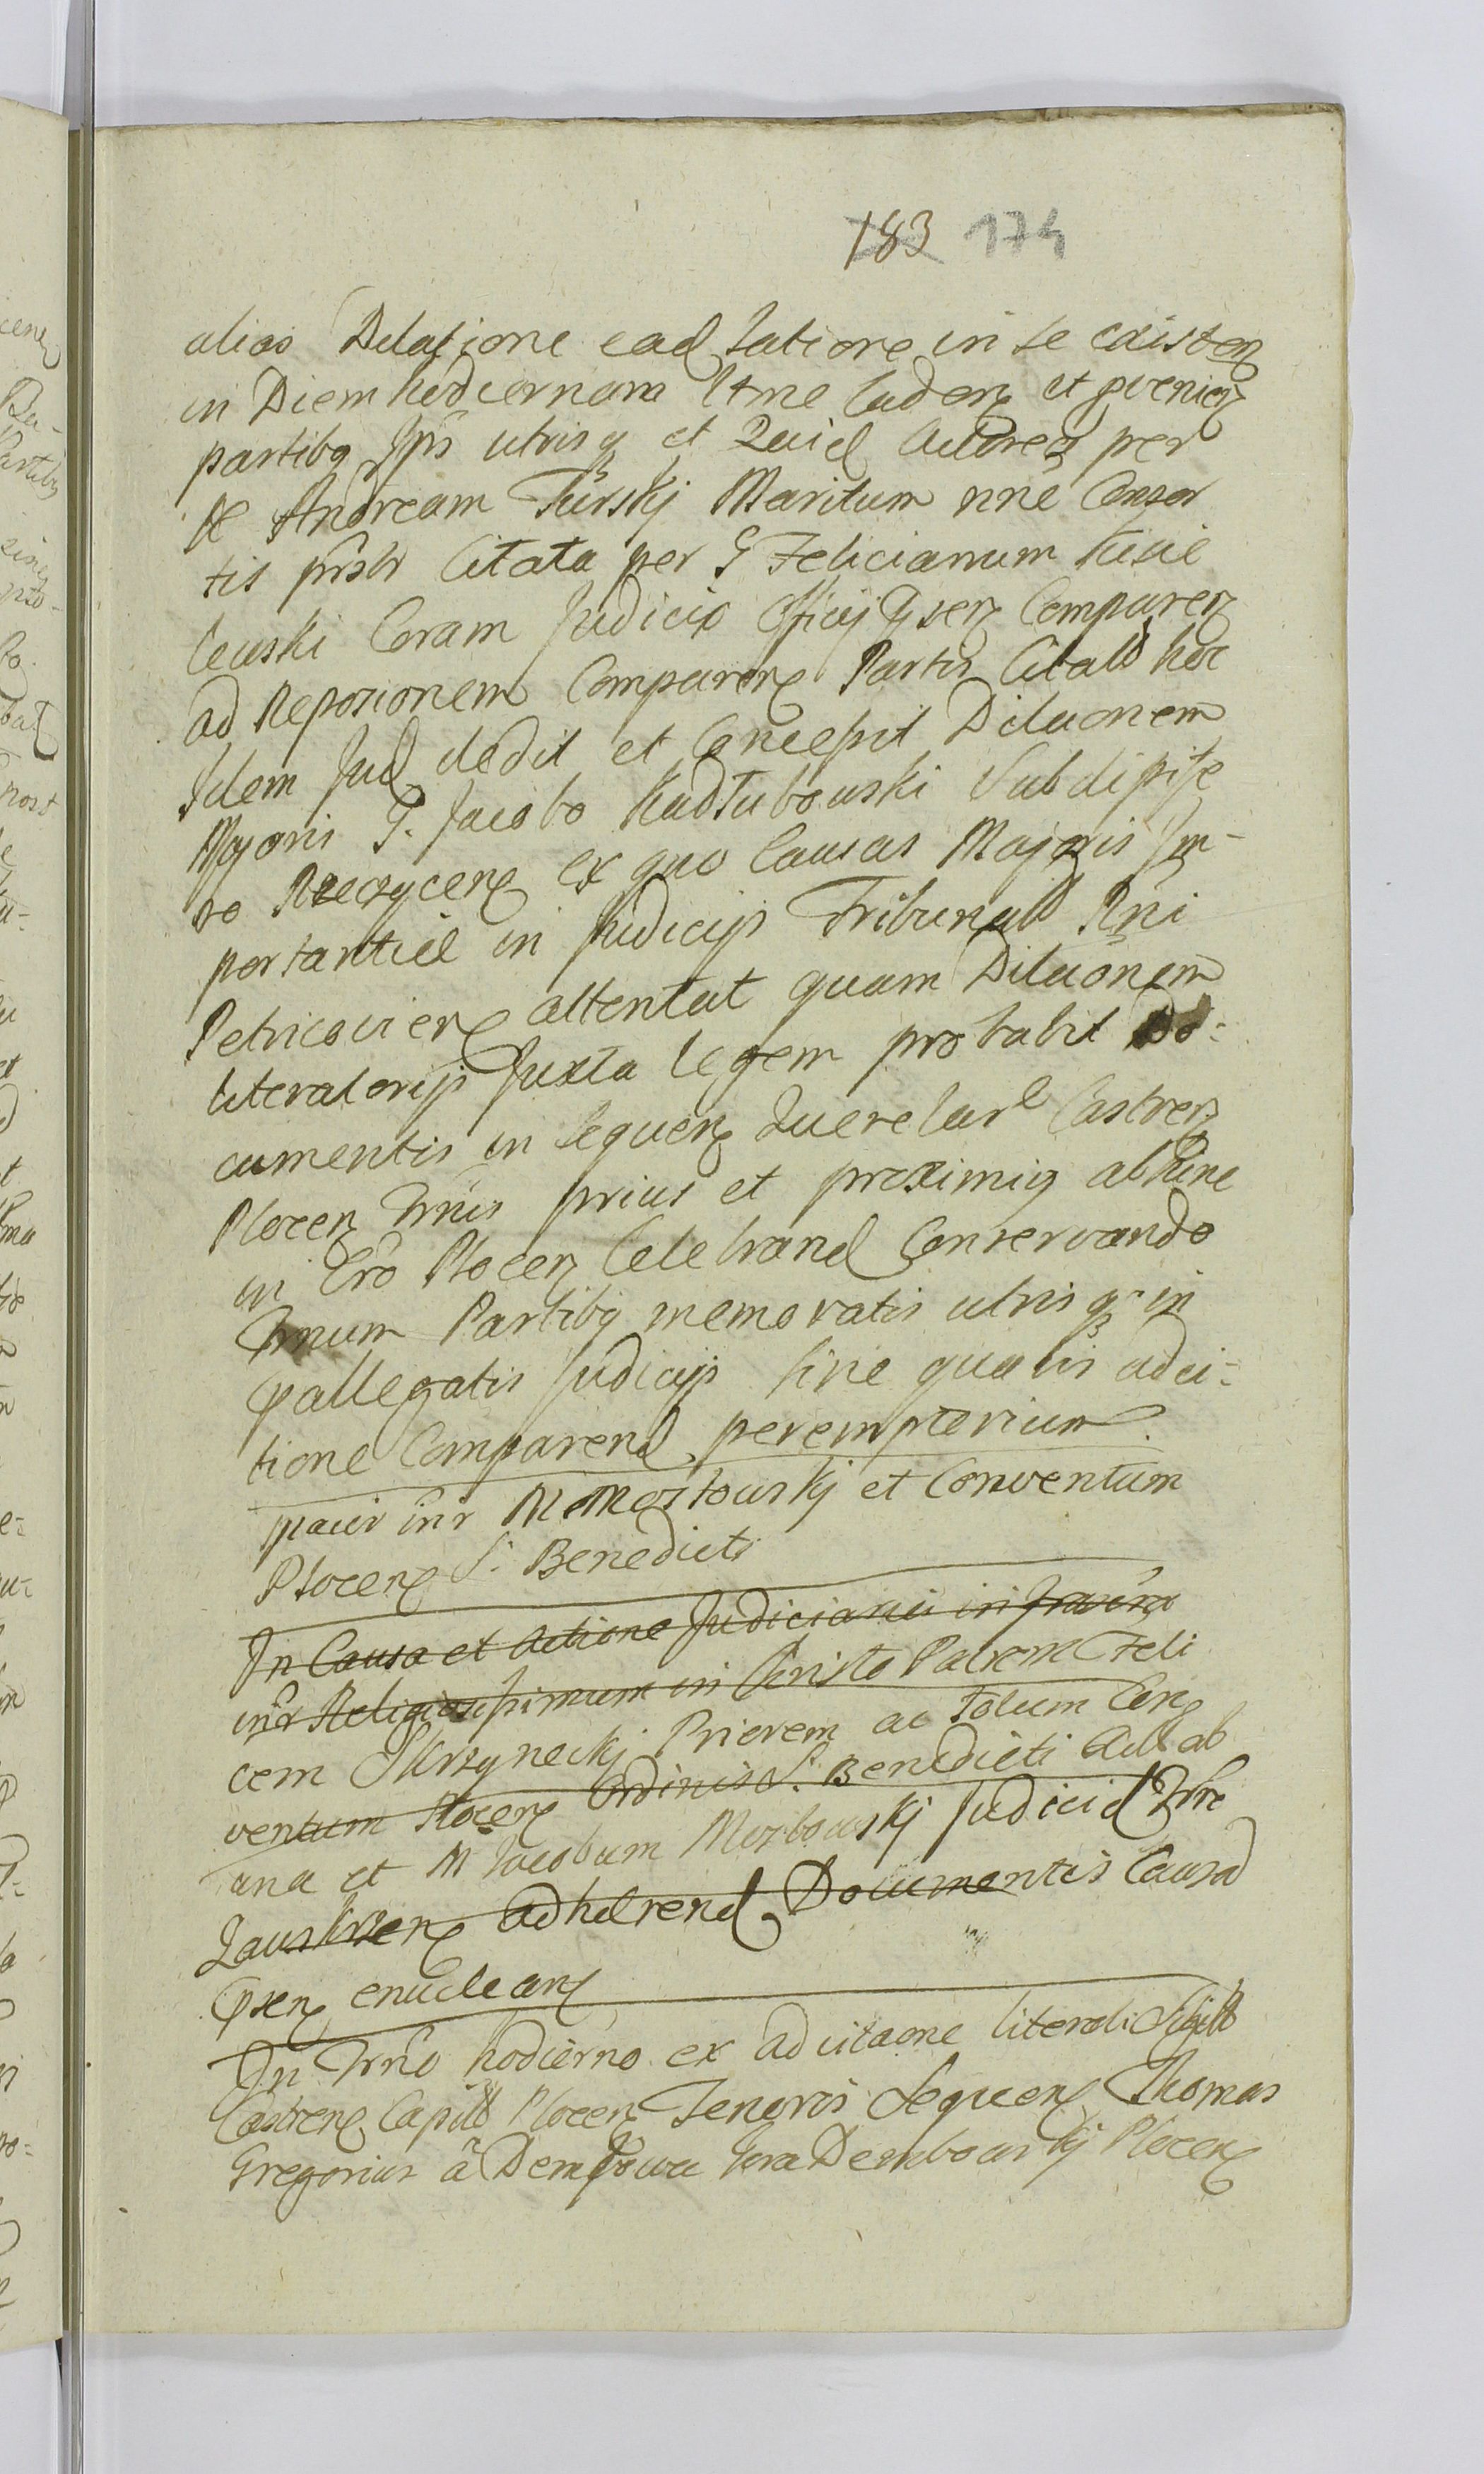 183 174
alias Dilatione ead latiore in se existen
in Diem hodiernam Itine caden et pvenien
partibq Jps utrisq et Quid Actorea per
M Andream Turskj Maritum
tis Citata per G Felicianum Kisie
lewski Coram Judicio Officij psen Comparen
ad Reposionem Comparere Partis Citatt hic
Idem Jud dedit et Concessit Dilaonem
Majoris G. Jacobo Kadłubowski Subdipite
ex quo Causas Majoris Im-
portantiæ in Judicijs Tribunatt Rni
Petricovien attentat quam Dilaonem
literatorijs Juxta legem probabit Do-
cumentis in sequen Querelar Castren
Plocen Trnis prius et proximiq abhinc
in Cro Plocen Celebrand Conservando
Trnum Partibq memoratis utrisq in
pallegatis Judicijs sine quavis adci-
tione Comparend peremptorium.
inr M Mostowskj et Conventum
Plocen S. Benedicti
In Causa et Actione Judiciaria
inr Religiosissimum in Christo Patrem Feli
cem Skrzyneckj Priorem ac totum Con
ventum Plocen Ordinis S. Benedicti Act ab
una et M Jacobum Mosbowskj Judicid Trre
Zauskrzen adhærend Documentis Causa
psen enuclean
In Trno hodierno ex adcitaone literali Sigill
Castren Capitt Plocen Tenoris Sequen Thomas
Gregorius â Dembowa Gora Dembowskj Plocen